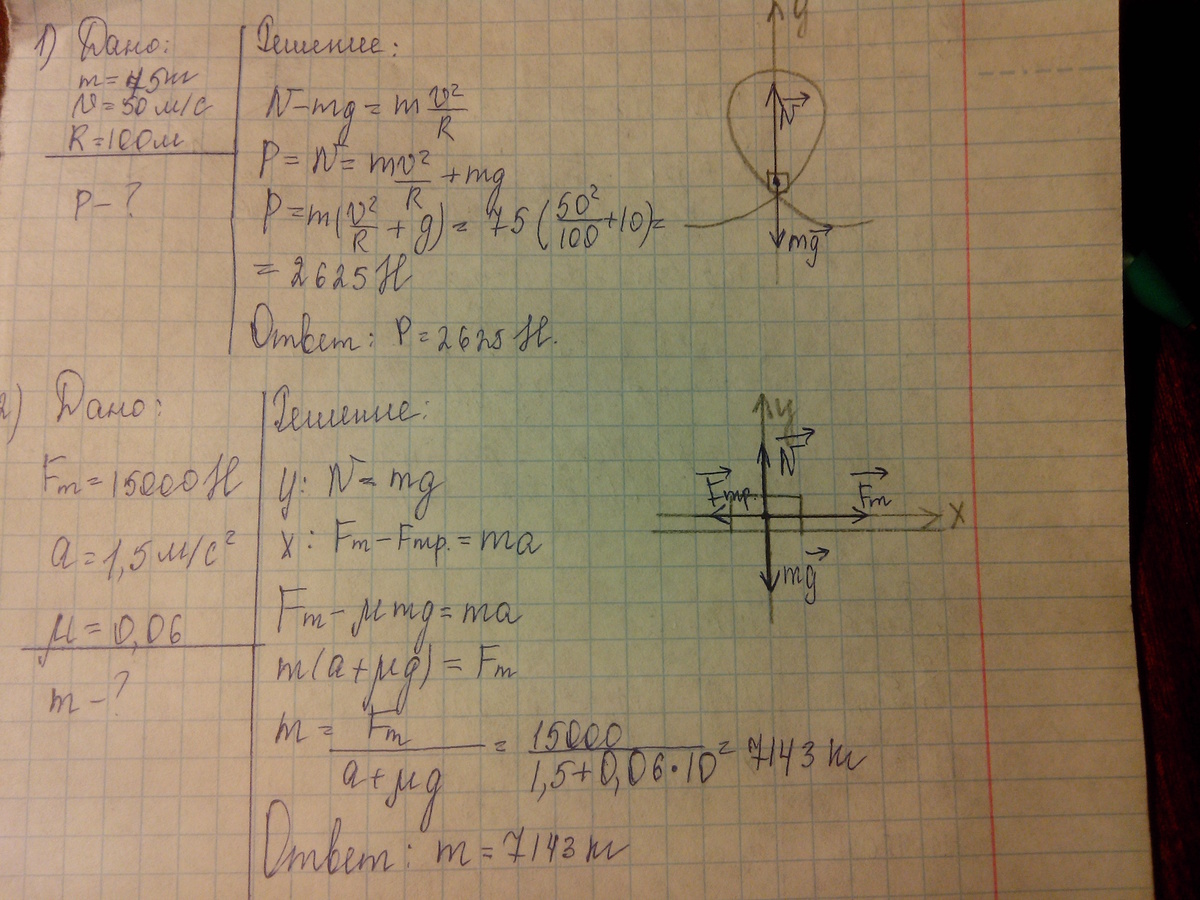 1) Дано:
m=75кг
v=50м/с
R=100м
P-?
Решение:
N-mg=m v²/R
P=N=mv²/R+mg
P=m(v²/R+g)=75(50²/100+10)=
=2625Н
Ответ: P=2625Н.
y
N
mg
2) Дано:
Fт=15000Н
a=1,5м/с²
μ=0,06
m-?
Решение:
y: N=mg
x: Fт-Fтр.=ma
Fт-μmg=ma
m(a+μg)=Fт
m=Fт/(a+μg)=15000/(1,5+0,06·10)=7143кг
Ответ: m=7143кг
y
N
Fтр.
Fт
x
mg